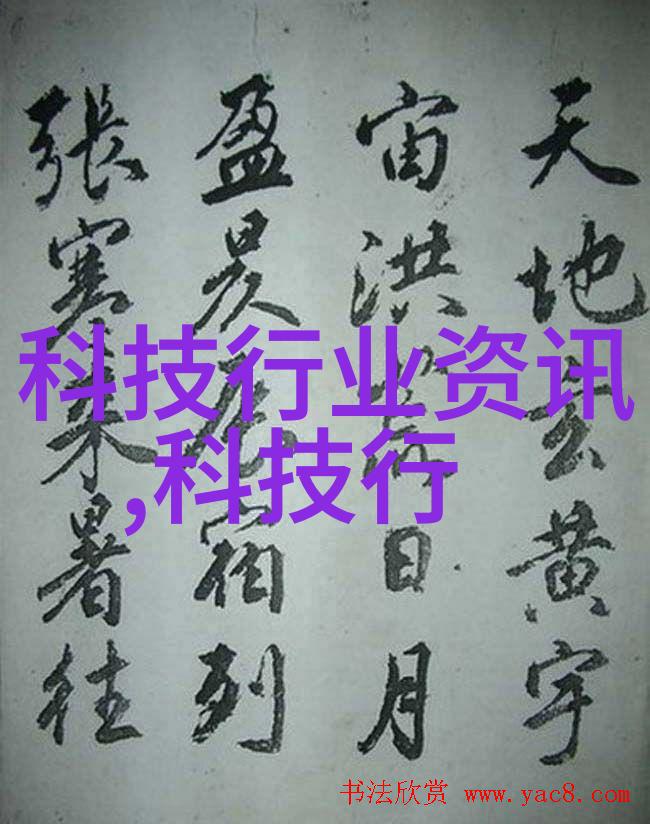 天地玄黄宇
宙洪日月
盈昃宿列
張寒来暑往
科技行业资讯
,科技行
书法欣赏 www.yac8.com